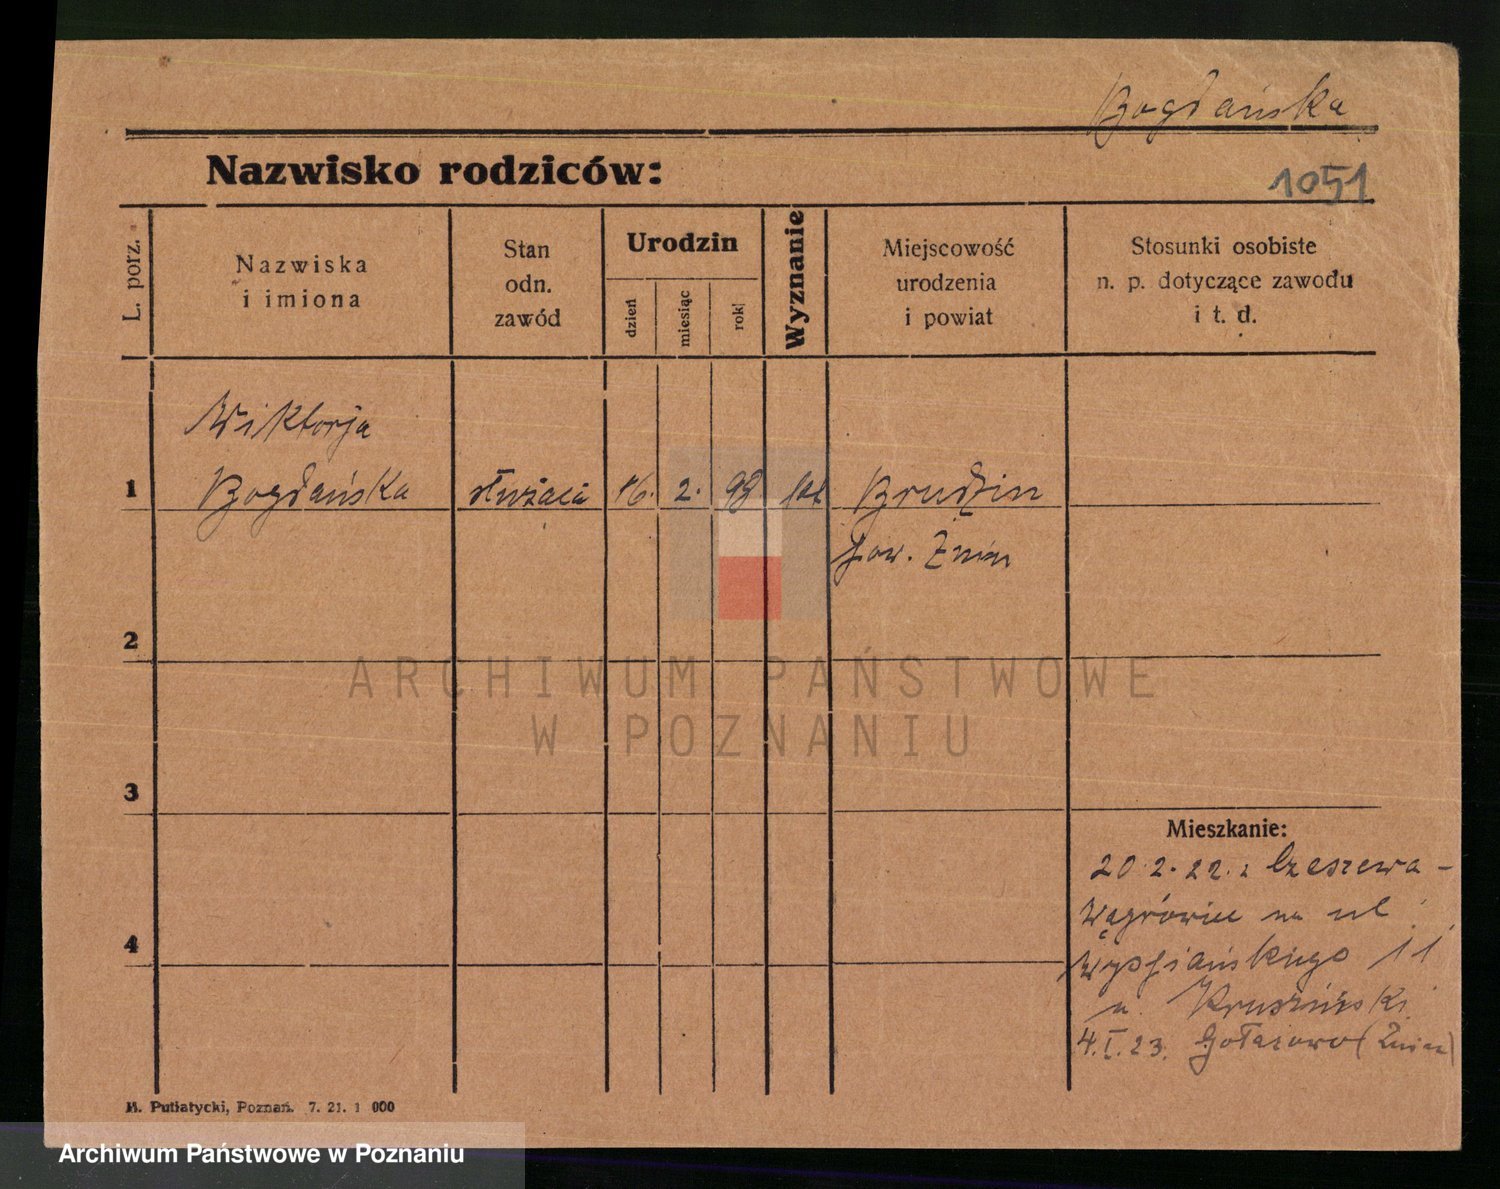 Bogdańska
Nazwisko rodziców:
1051
L. porz.
Nazwiska
i imiona
Stan
odn.
zawód
Urodzin
dzień
miesiąc
rok
Wyznanie
Miejscowość
urodzenia
i powiat
Stosunki osobiste
n. p. dotyczące zawodu
i t. d.
Wiktorja
1 Bogdańska służąca 16. 2. 98 kat Brudzin
pow. Żnin
2
ARCHIWUM PAŃSTWOWE
W POZNANIU
3
Mieszkanie:
20.2.22. z Czeszewa -
Wągrówiec na ul
4
Wyspiańskiego 11
u
4.I.23. Gołaszewo (Żnin)
M. Putiatycki, Poznań. 7. 21. 1 000
Archiwum Państwowe w Poznaniu